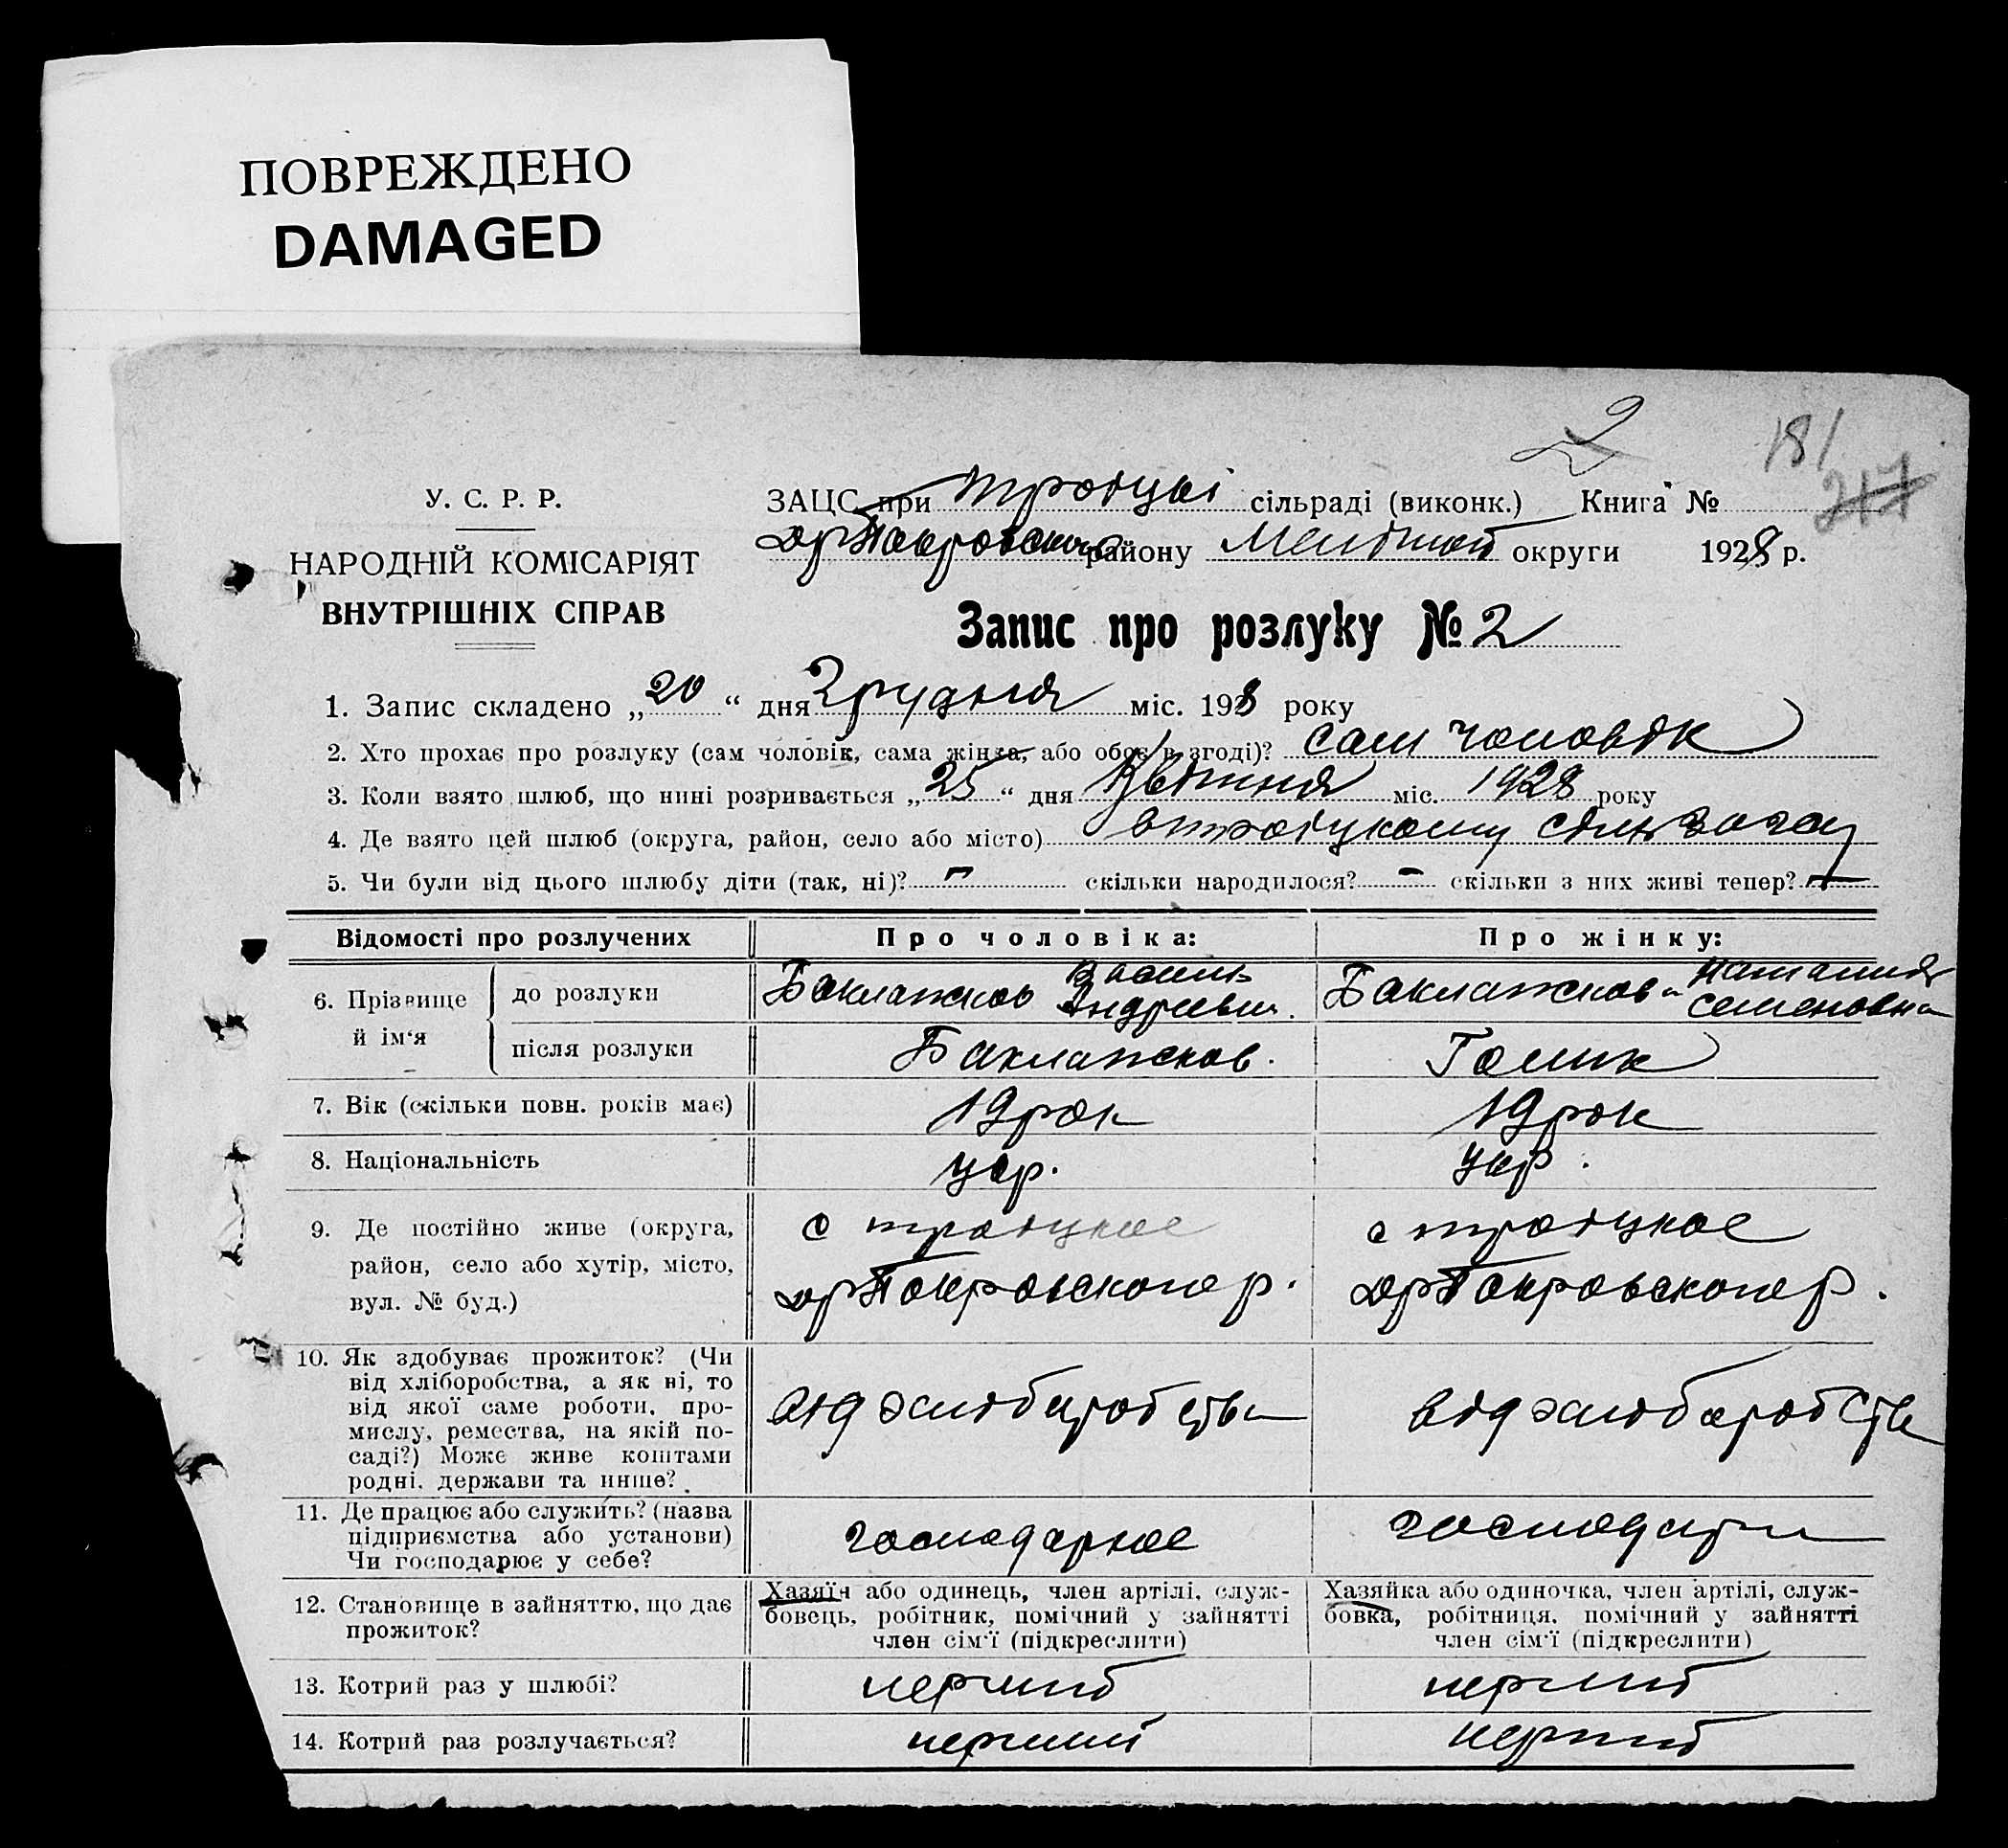 ПОВРЕЖДЕНО
DAMAGED
2
181
217
У. С. Р. Р.
НАРОДНІЙ КОМІСАРІЯТ
ВНУТРІШНІХ СПРАВ
ЗАЦС при Троіцькі сільраді (виконк.) Книга №
Покровского району округи 1928 р.
Запис про розлуку № 2
1. Запис складено „20“ дня Грудня міс. 1928 року
2. Хто прохає про розлуку (сам чоловік, сама жінка, або обоє в згоді)? сам чоловік
3. Коли взято шлюб, що нині розривається „25“ дня Квітня міс. 1928 року
4. Де взято цей шлюб (округа, район, село або місто) в троіцкому
5. Чи були від цього шлюбу діти (так, ні)? - скільки народилося? - скільки з них живі тепер? -
Відомості про розлучених Про чоловіка: Про жінку:
6. Прізвище й ім‘я
до розлуки Баклажков Василь Андреевич. Баклажкова Наталия Семеновна
після розлуки Баклажков. Голик
7. Вік (скільки повн. років має) 19 рок 19 рок
8. Національність укр. укр.
9. Де постійно живе (округа, район, село або хутір, місто, вул. № буд.)
с троіцкое с троіцкое
Покровского р. Покровского р.
10. Як здобуває прожиток? (Чи
від хліборобства, а як ні, то
від якої саме роботи, про-
мислу, ремества, на якій по-
саді?) Може живе коштами
родні, держави та инше?
від хліборобства від хліборобства
11. Де працює або служить? (назва
підприємства або установи)
Чи господарює у себе?
господарює
12. Становище в зайняттю, що дає
прожиток?
Хазяїн або одинець, член артілі, служ-
бовець, робітник, помічний у зайнятті
член сім‘ї (підкреслити)
Хазяйка або одиночка, член артілі, служ-
бовка, робітниця, помічний у зайнятті
член сім‘ї (підкреслити)
13. Котрий раз у шлюбі? перший перший
14. Котрий раз розлучається? перший перший